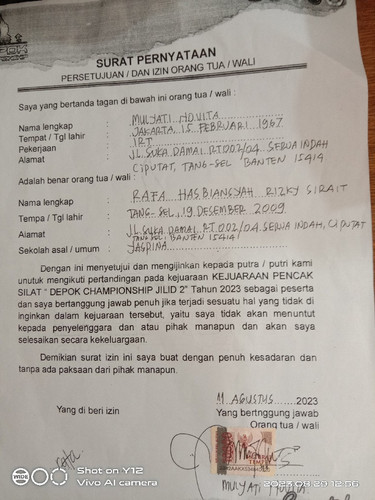 SURAT PERNYATAAN
PERSETUJUAN / DAN IZIN ORANG TUA / WALI
Saya yang bertanda tagan di bawah ini orang tua / wali :
Nama lengkap : MULYATI NOVITA
Tempat / Tgl lahir : JAKARTA 15 FEBRUARI 1967
Pekerjaan : IRT
Alamat : JL SUKA DAMAI RT 002/04 SERUA INDAH
CIPUTAT, TANG-SEL BANTEN 15414
Adalah benar orang tua / wali :
Nama lengkap : RAFA HASBIANSYAH RIZKY SIRAIT
Tempa / Tgl lahir : TANG-SEL, 19 DESEMBER 2009
Alamat : JL SUKA DAMAI RT 002/04 SERUA INDAH, CIPUTAT
TANG SEL BANTEN 15414
Sekolah asal / umum :
Dengan ini menyetujui dan mengijinkan kepada putra / putri kami
unutuk mengikuti pertandingan pada kejuaraan KEJUARAAN PENCAK
SILAT " DEPOK CHAMPIONSHIP JILID 2" Tahun 2023 sebagai peserta
dan saya bertanggung jawab penuh jika terjadi sesuatu hal yang tidak di
inginkan dalam kejuaraan tersebut, yaitu saya tidak akan menuntut
kepada penyelenggara dan atau pihak manapun dan akan saya
selesaikan secara kekeluargaan.
Demikian surat izin ini saya buat dengan penuh kesadaran dan
tanpa ada paksaan dari pihak manapun.
11 AGUSTUS 2023
Yang di beri izin
Yang bertnggung jawab
Orang tua / wali
TEMPEL
MULYATI NOVITA
Shot on Y12
Vivo AI camera
2023.08.20 12:56